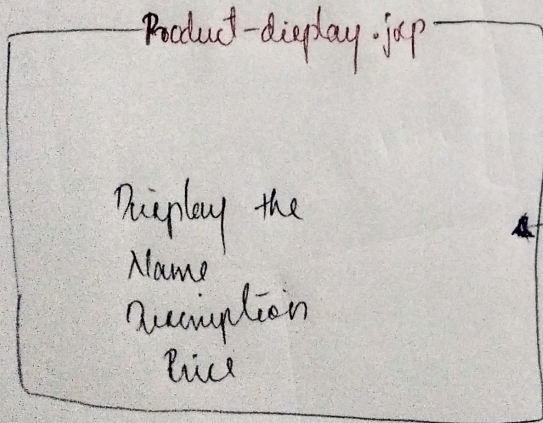 Product-display.jsp
Display the
Name
Description
Price